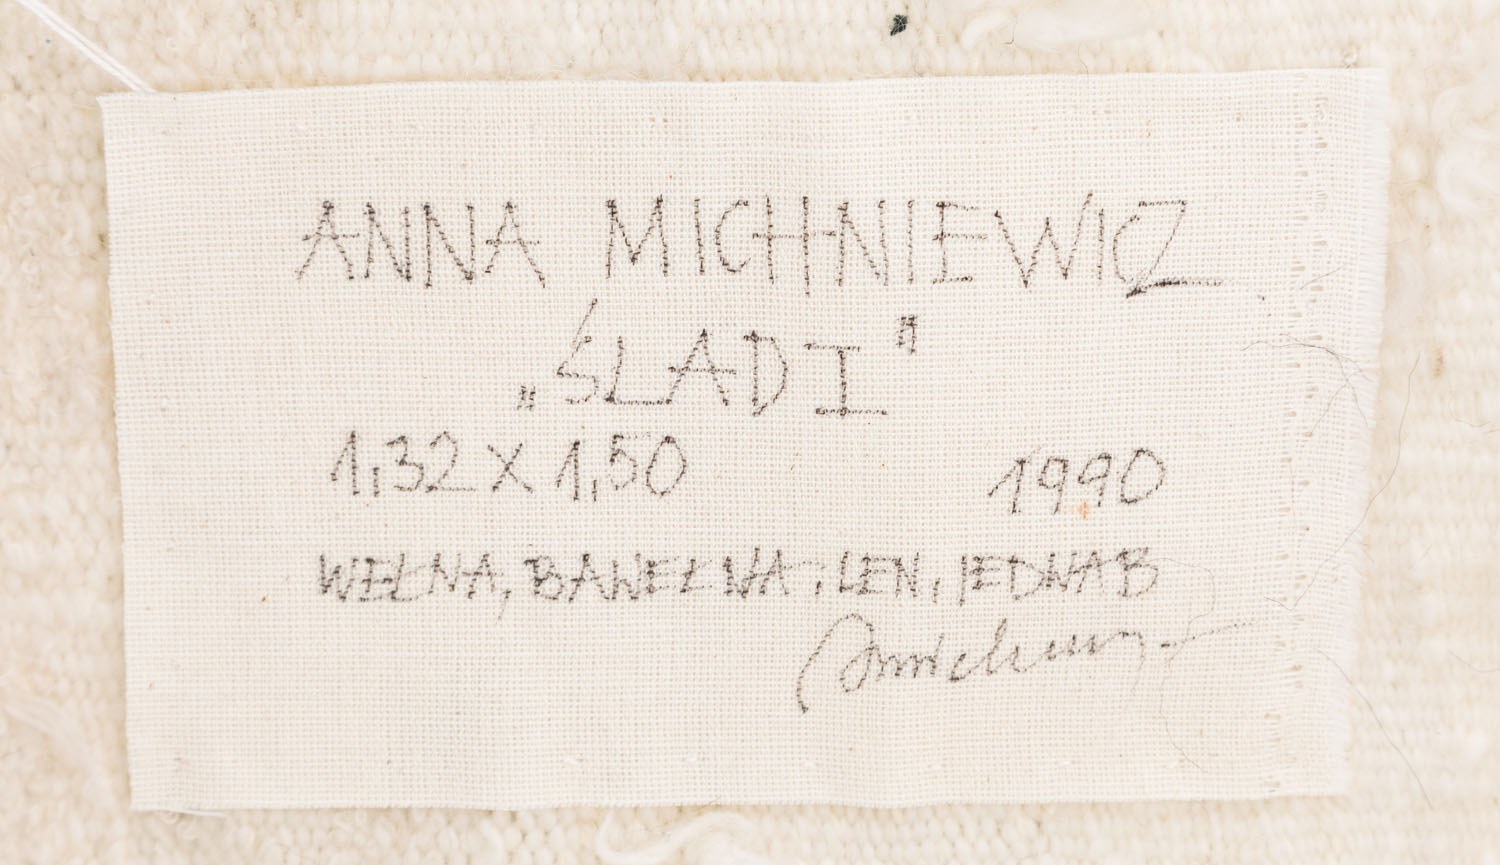 ANNA MICHNIEWICZ
„ŚLAD I"
1,32 x 1,50 1990
WEŁNA, BAWEŁNA, LEN, JEDWAB